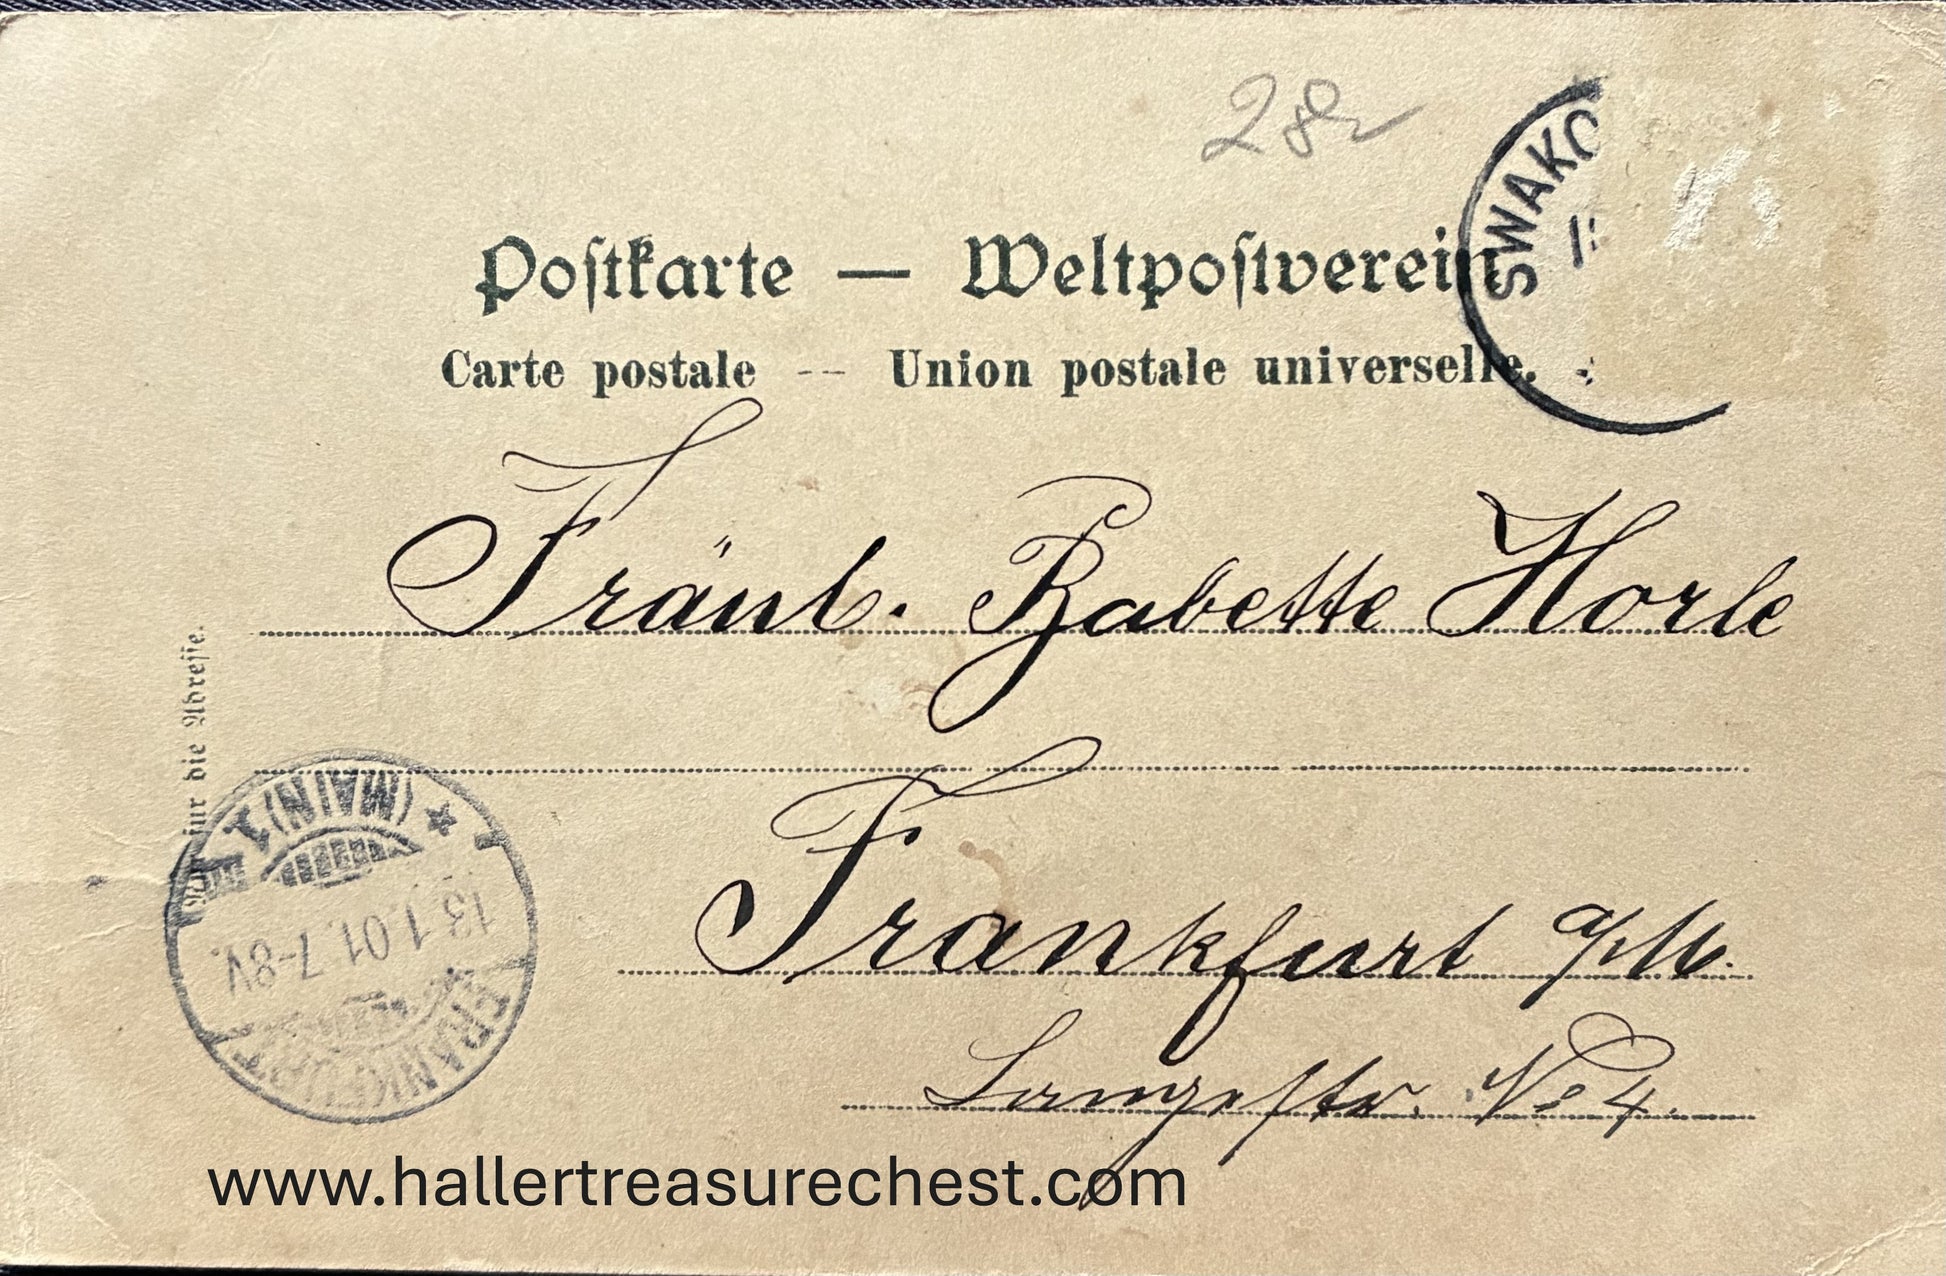 28
SWAKO
Postkarte — Weltpostverein
Carte postale -- Union postale universelle.
Fräul. Babette Horle
Nur für die Adresse.
Frankfurt a/M.
Langestr. No 4.
FRANKFURT (MAIN) 1
13.1.01.7-8V.
www.hallertreasurechest.com